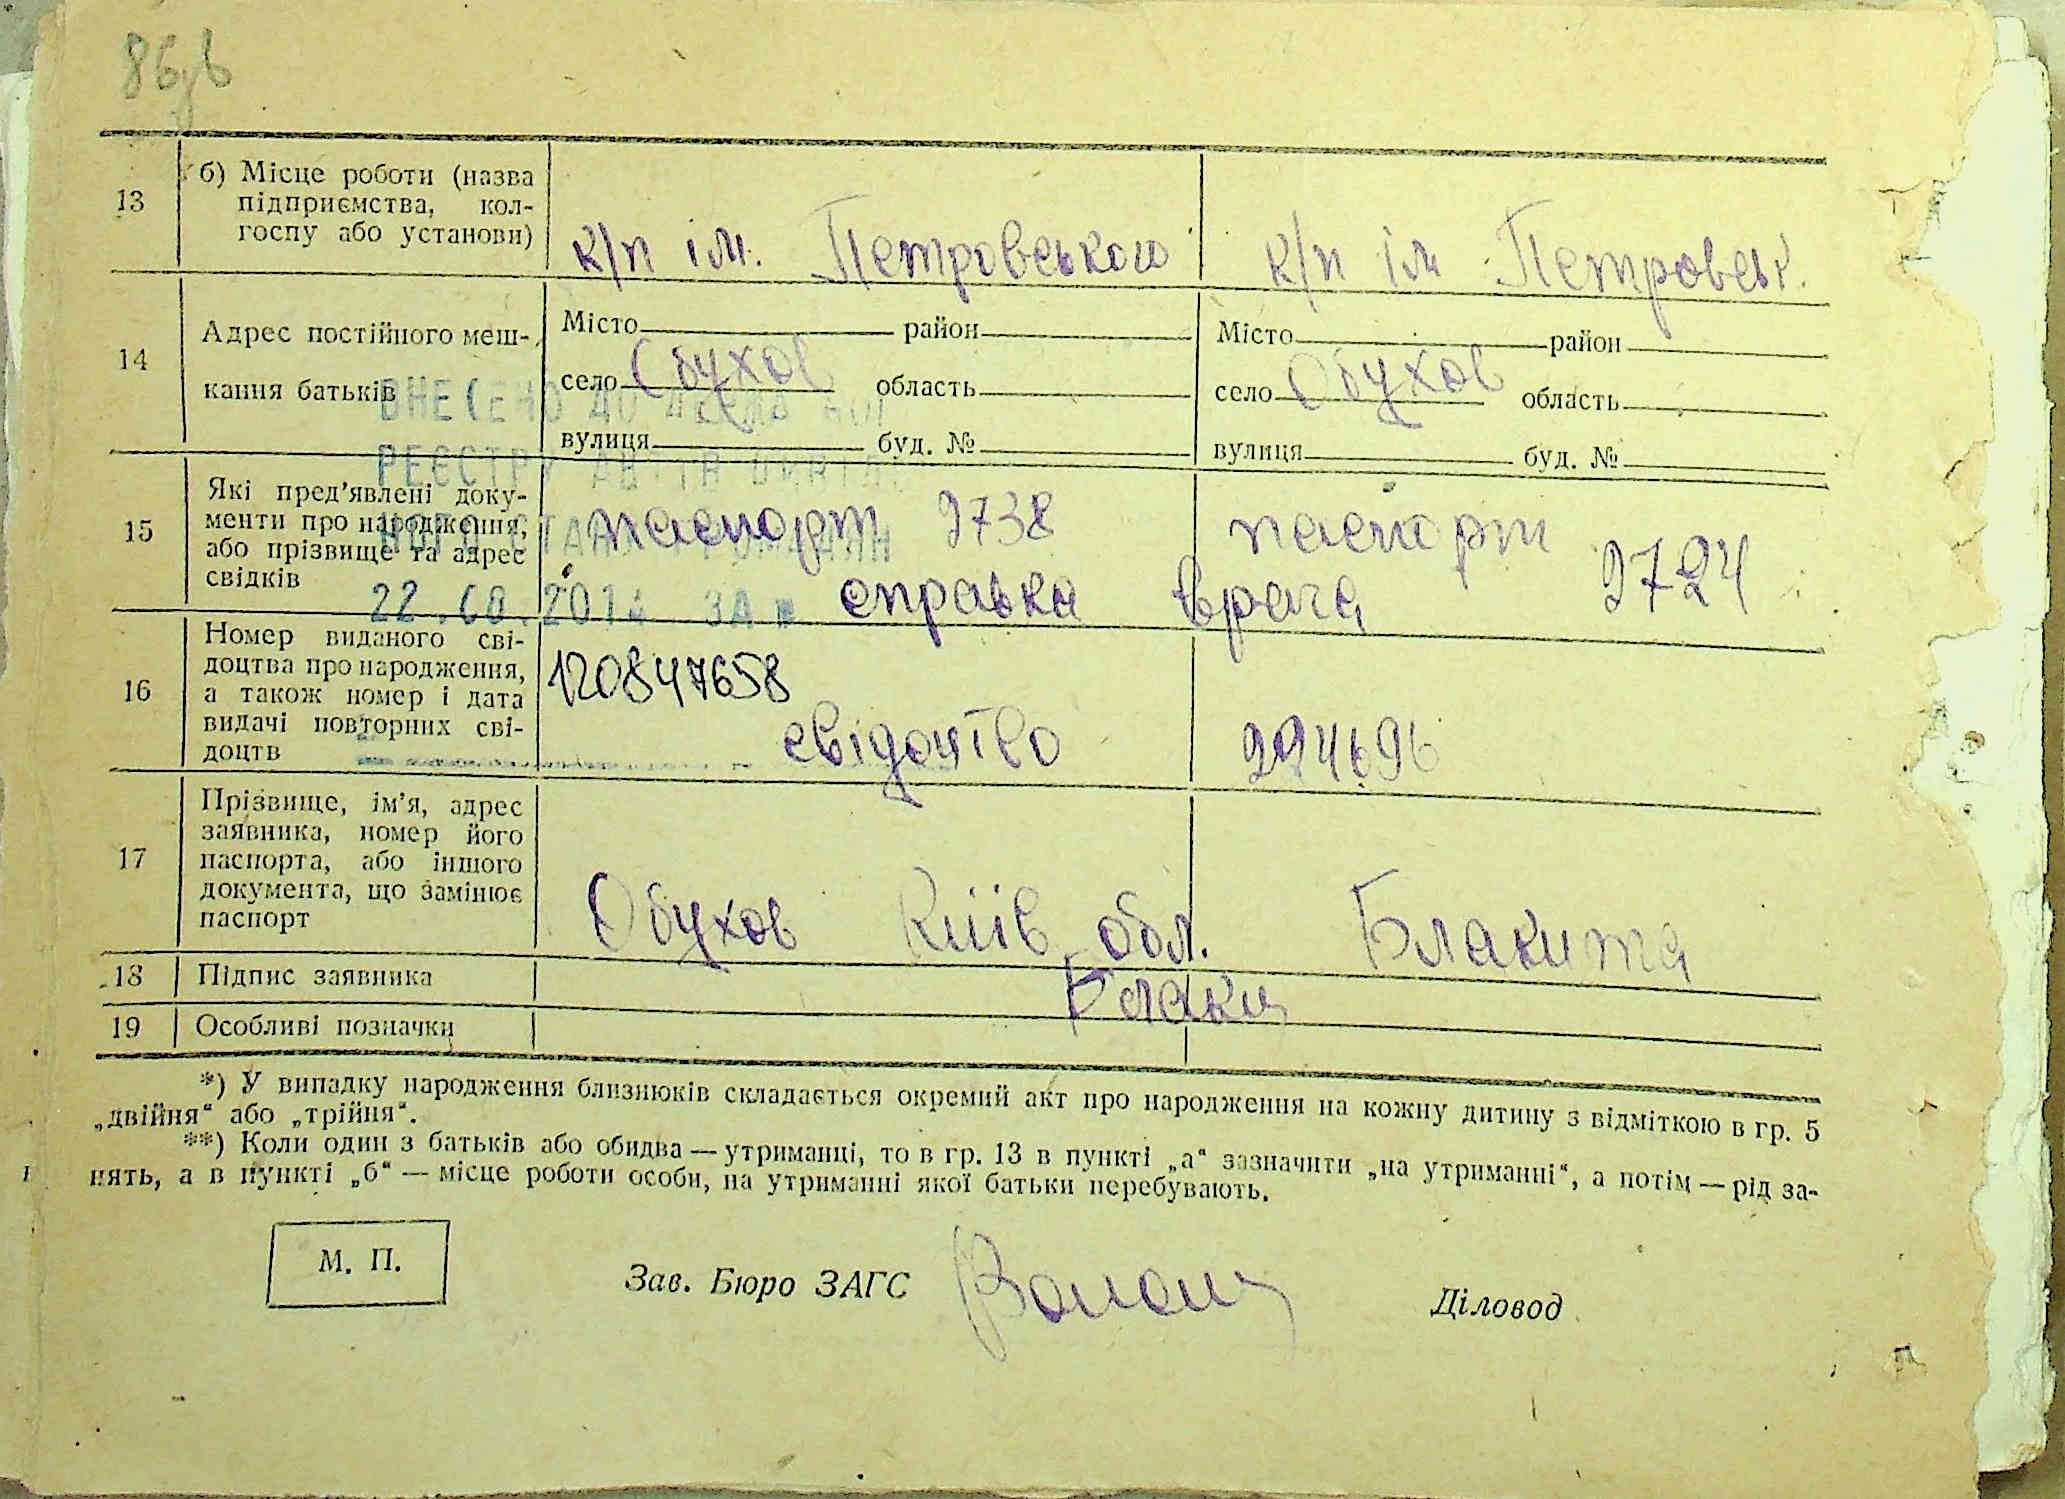 13
б) Місце роботи (назва
підприємства, кол-
госпу або установи)
к/п ім. Петровського
к/п ім Петровськ.
14
Адрес постійного меш-
кання батьків
Місто район
село Обухов область
вулиця буд. №
Місто район
село Обухов область
вулиця буд. №
ВНЕСЕНО ДО
РЕЄСТРУ
15
Які пред'явлені доку-
менти про народження,
або прізвище та адрес
свідків
паспорт 9738
паспорт 9724
справка врача
16
Номер виданого сві-
доцтва про народження,
а також номер і дата
видачі повторних сві-
доцтв
120847658
свідоцтво 294696
17
Прізвище, ім'я, адрес
заявника, номер його
паспорта, або іншого
документа, що замінює
паспорт
Обухов Київ обл. Блакита
18
Підпис заявника
Блаки
19
Особливі позначки
*) У випадку народження близнюків складається окремий акт про народження на кожну дитину з відміткою в гр. 5
„двійня“ або „трійня“.
**) Коли один з батьків або обидва — утриманці, то в гр. 13 в пункті „а“ зазначити „на утриманні“, а потім — рід за-
нять, а в пункті „б“ — місце роботи особи, на утриманні якої батьки перебувають.
М. П.
Зав. Бюро ЗАГС
Діловод